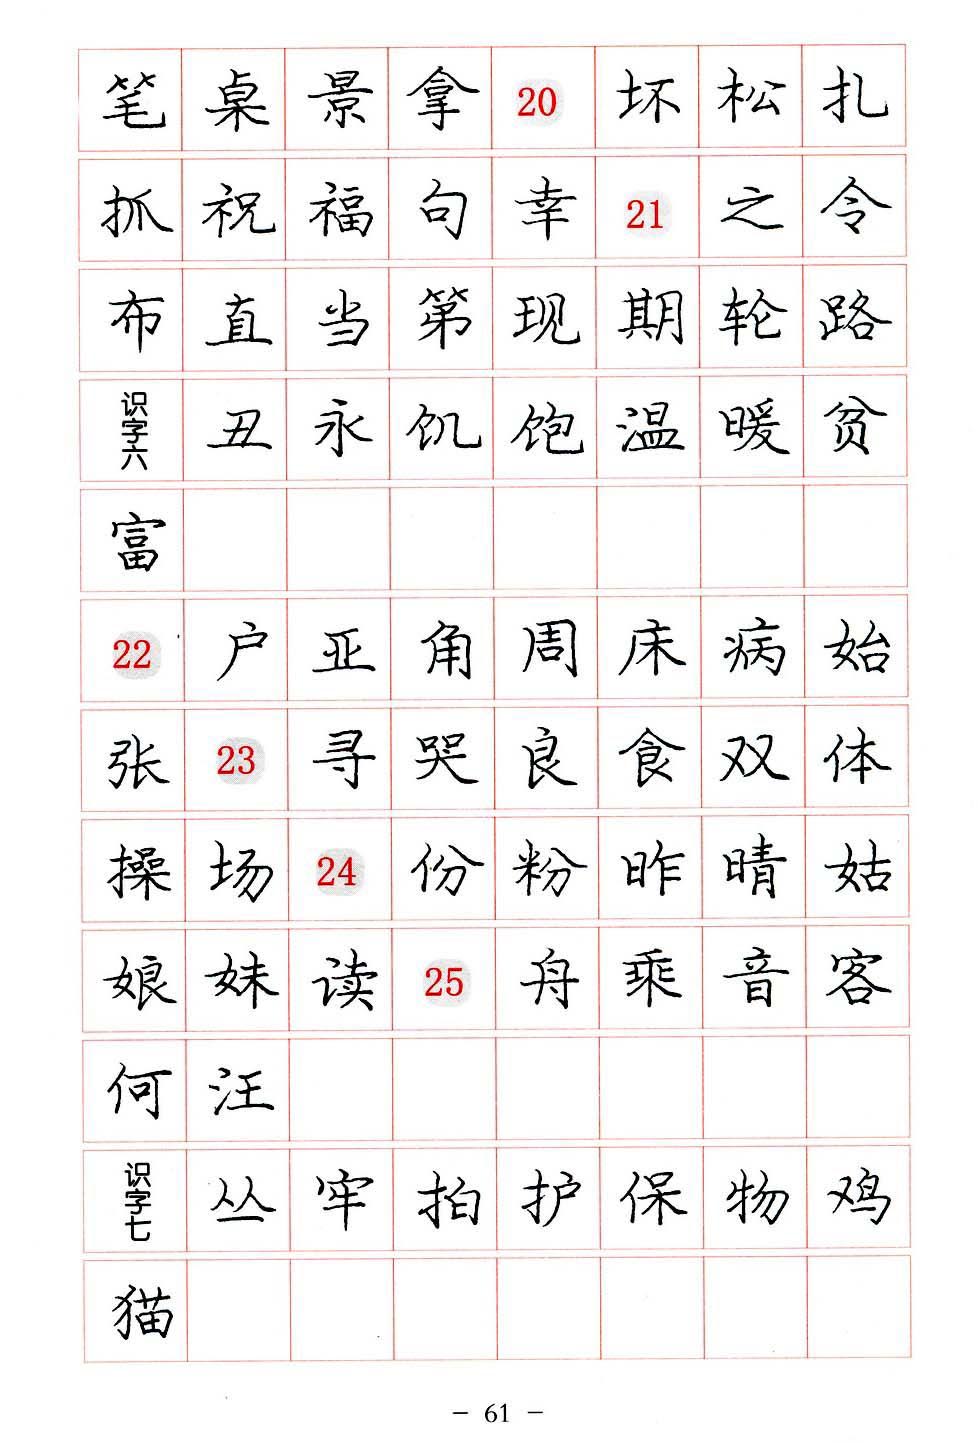 笔 桌 景 拿 20 坏 松 扎
抓 祝 福 句 幸 21 之 令
布 直 当 第 现 期 轮 路
识字六 丑 永 饥 饱 温 暖 贫
富
22 户 亚 角 周 床 病 始
张 23 寻 哭 良 食 双 体
操 场 24 份 粉 昨 晴 姑
娘 妹 读 25 舟 乘 音 客
何 汪
识字七 丛 牢 拍 护 保 物 鸡
猫
- 61 -